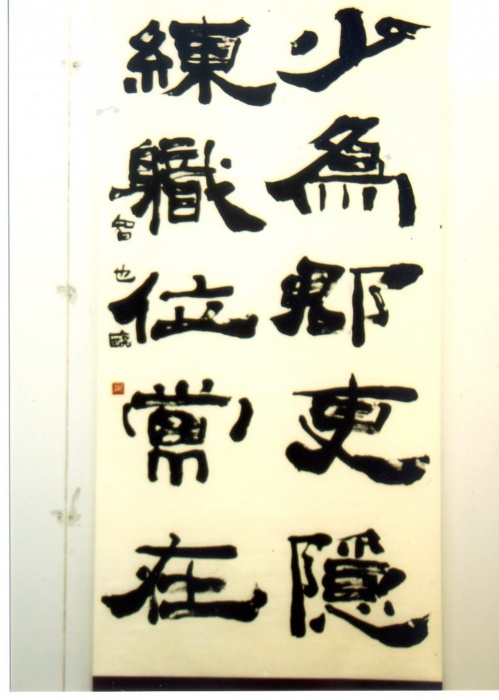 少為郡吏隱
練軄位常在
智也臨